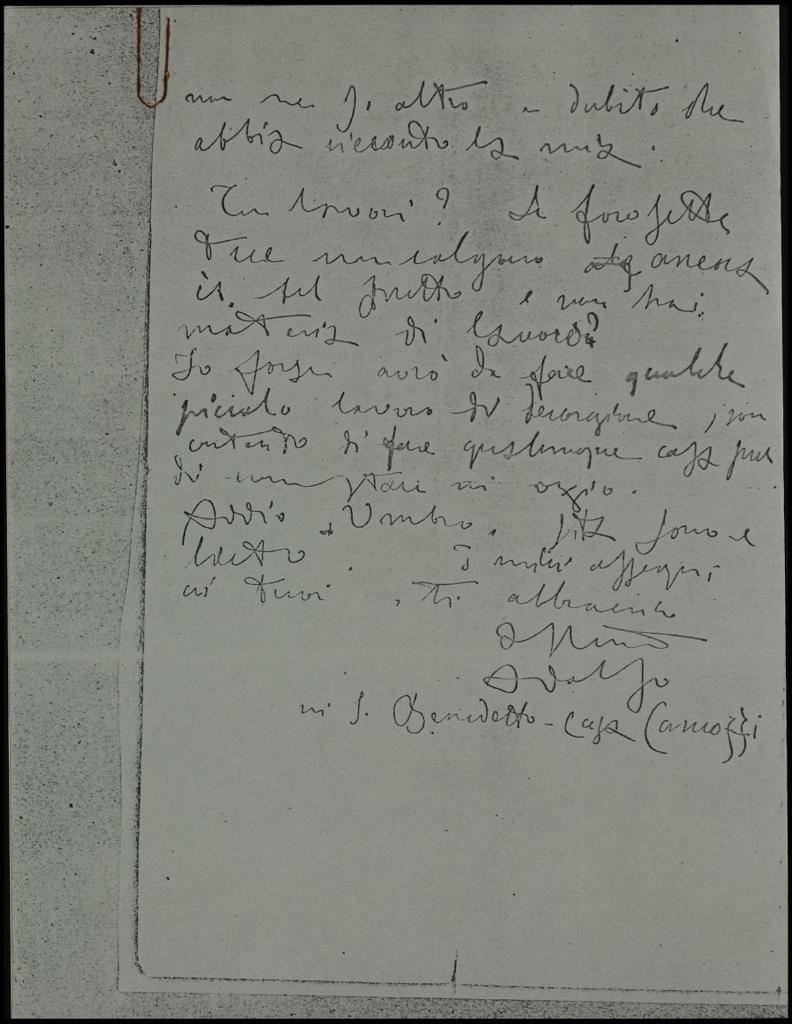 non ne so altro e dubito che
abbia ricevuto la mia.
Tu lavori? Le forosette
tue non calgono ancora
il
e non hai
materia di lavoro?
Io forse avrò da fare qualche
piccolo lavoro di decorazione, son
contento di fare qualunque cosa pur
di non stare in ozio.
Addio, Umbro. sta sano e
lieto. I miei ossequi
ai tuoi, ti abbraccio
Adolfo
in S. Benedetto - casa Camozzi